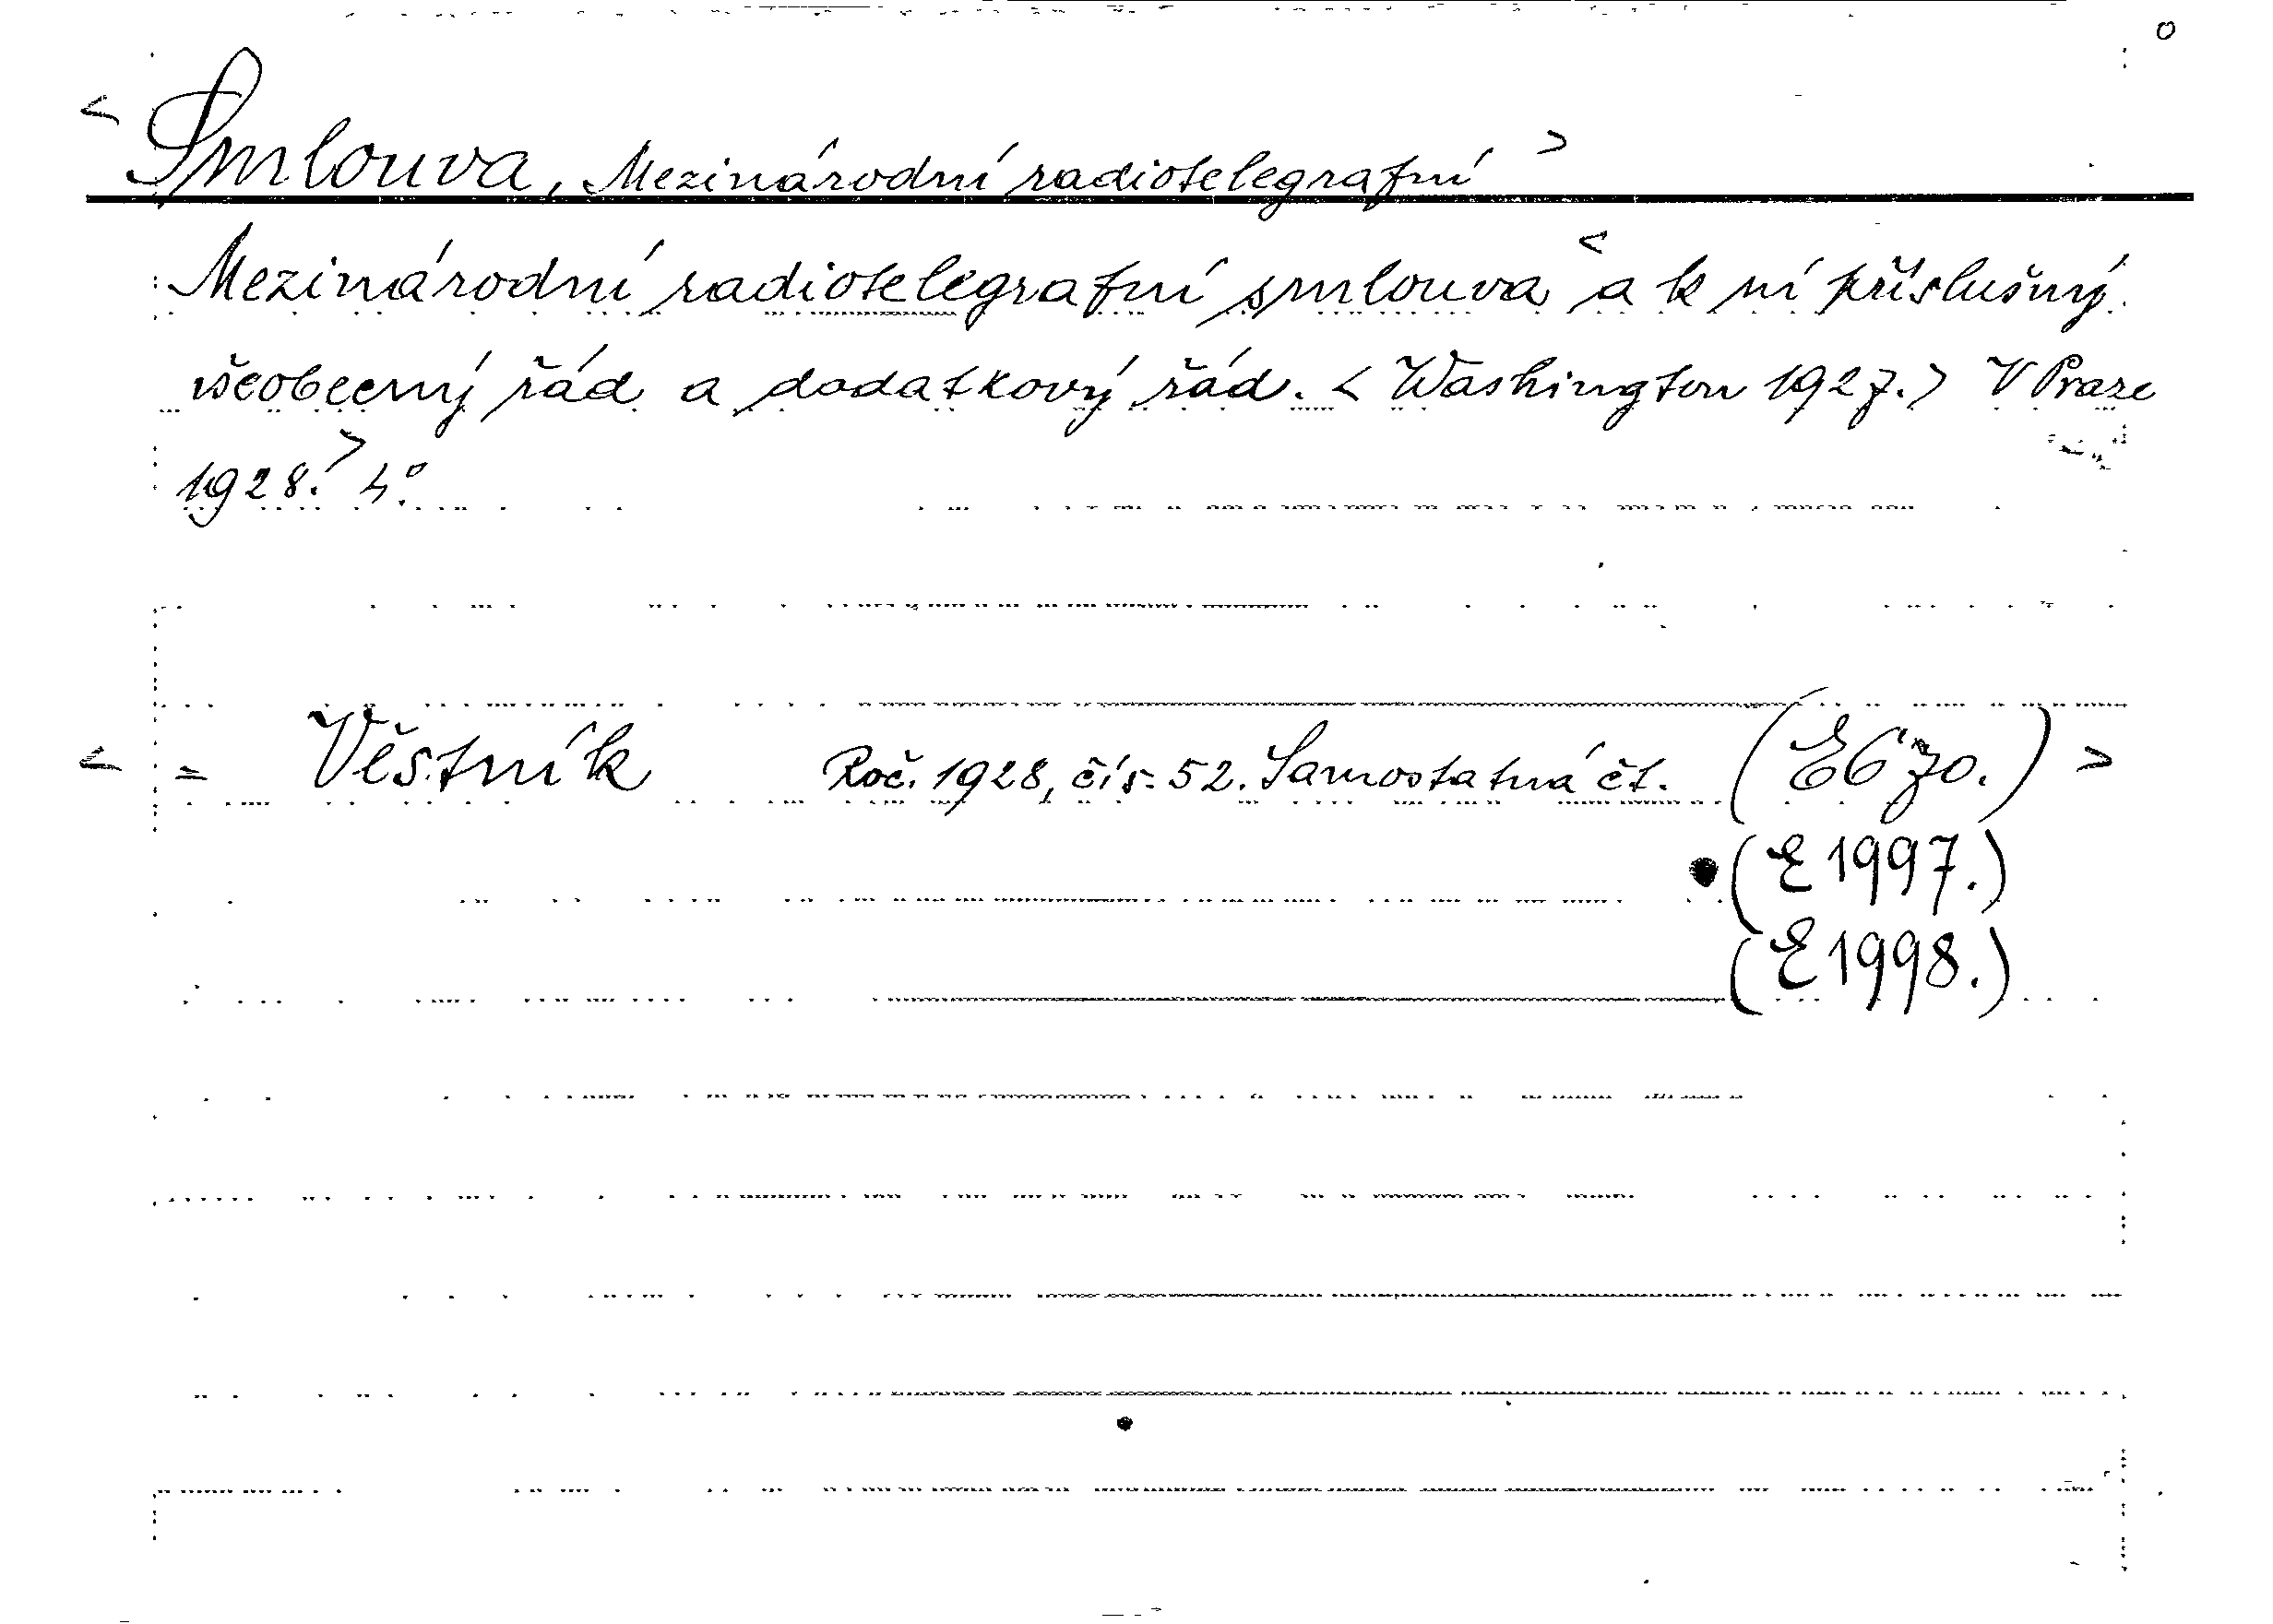 < Smlouva, Mezinárodní radiotelegrafní >
Mezinárodní radiotelegrafní smlouva < a k ní příslušný
všeobecný řád a dodatkový řád. < Washington 1927. > V Praze
1928. > 4°.
< = Věstník Roč. 1928, čís. 52. Samostatná čt. (E670.) >
(E1997.)
(E1998.)